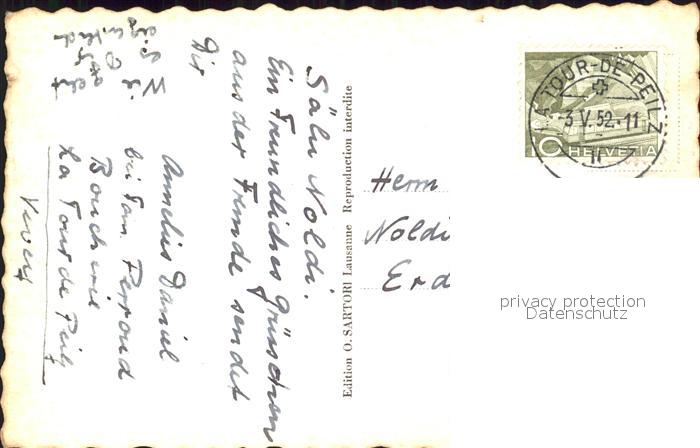 Sälu Noldi.
Ein freundliches Grüsschen
aus der Fremde sendet
Dir
Daniel
bei Fam. Perroud
Boucherie
La Tour de Peilz
Vevey
Wie
geht
es Dir
Edition O. SARTORI Lausanne Reproduction interdite
LA TOUR-DE-PEILZ
-3.V.52.-11
10 HELVETIA
Herrn
Noldi
Erd
privacy protection
Datenschutz